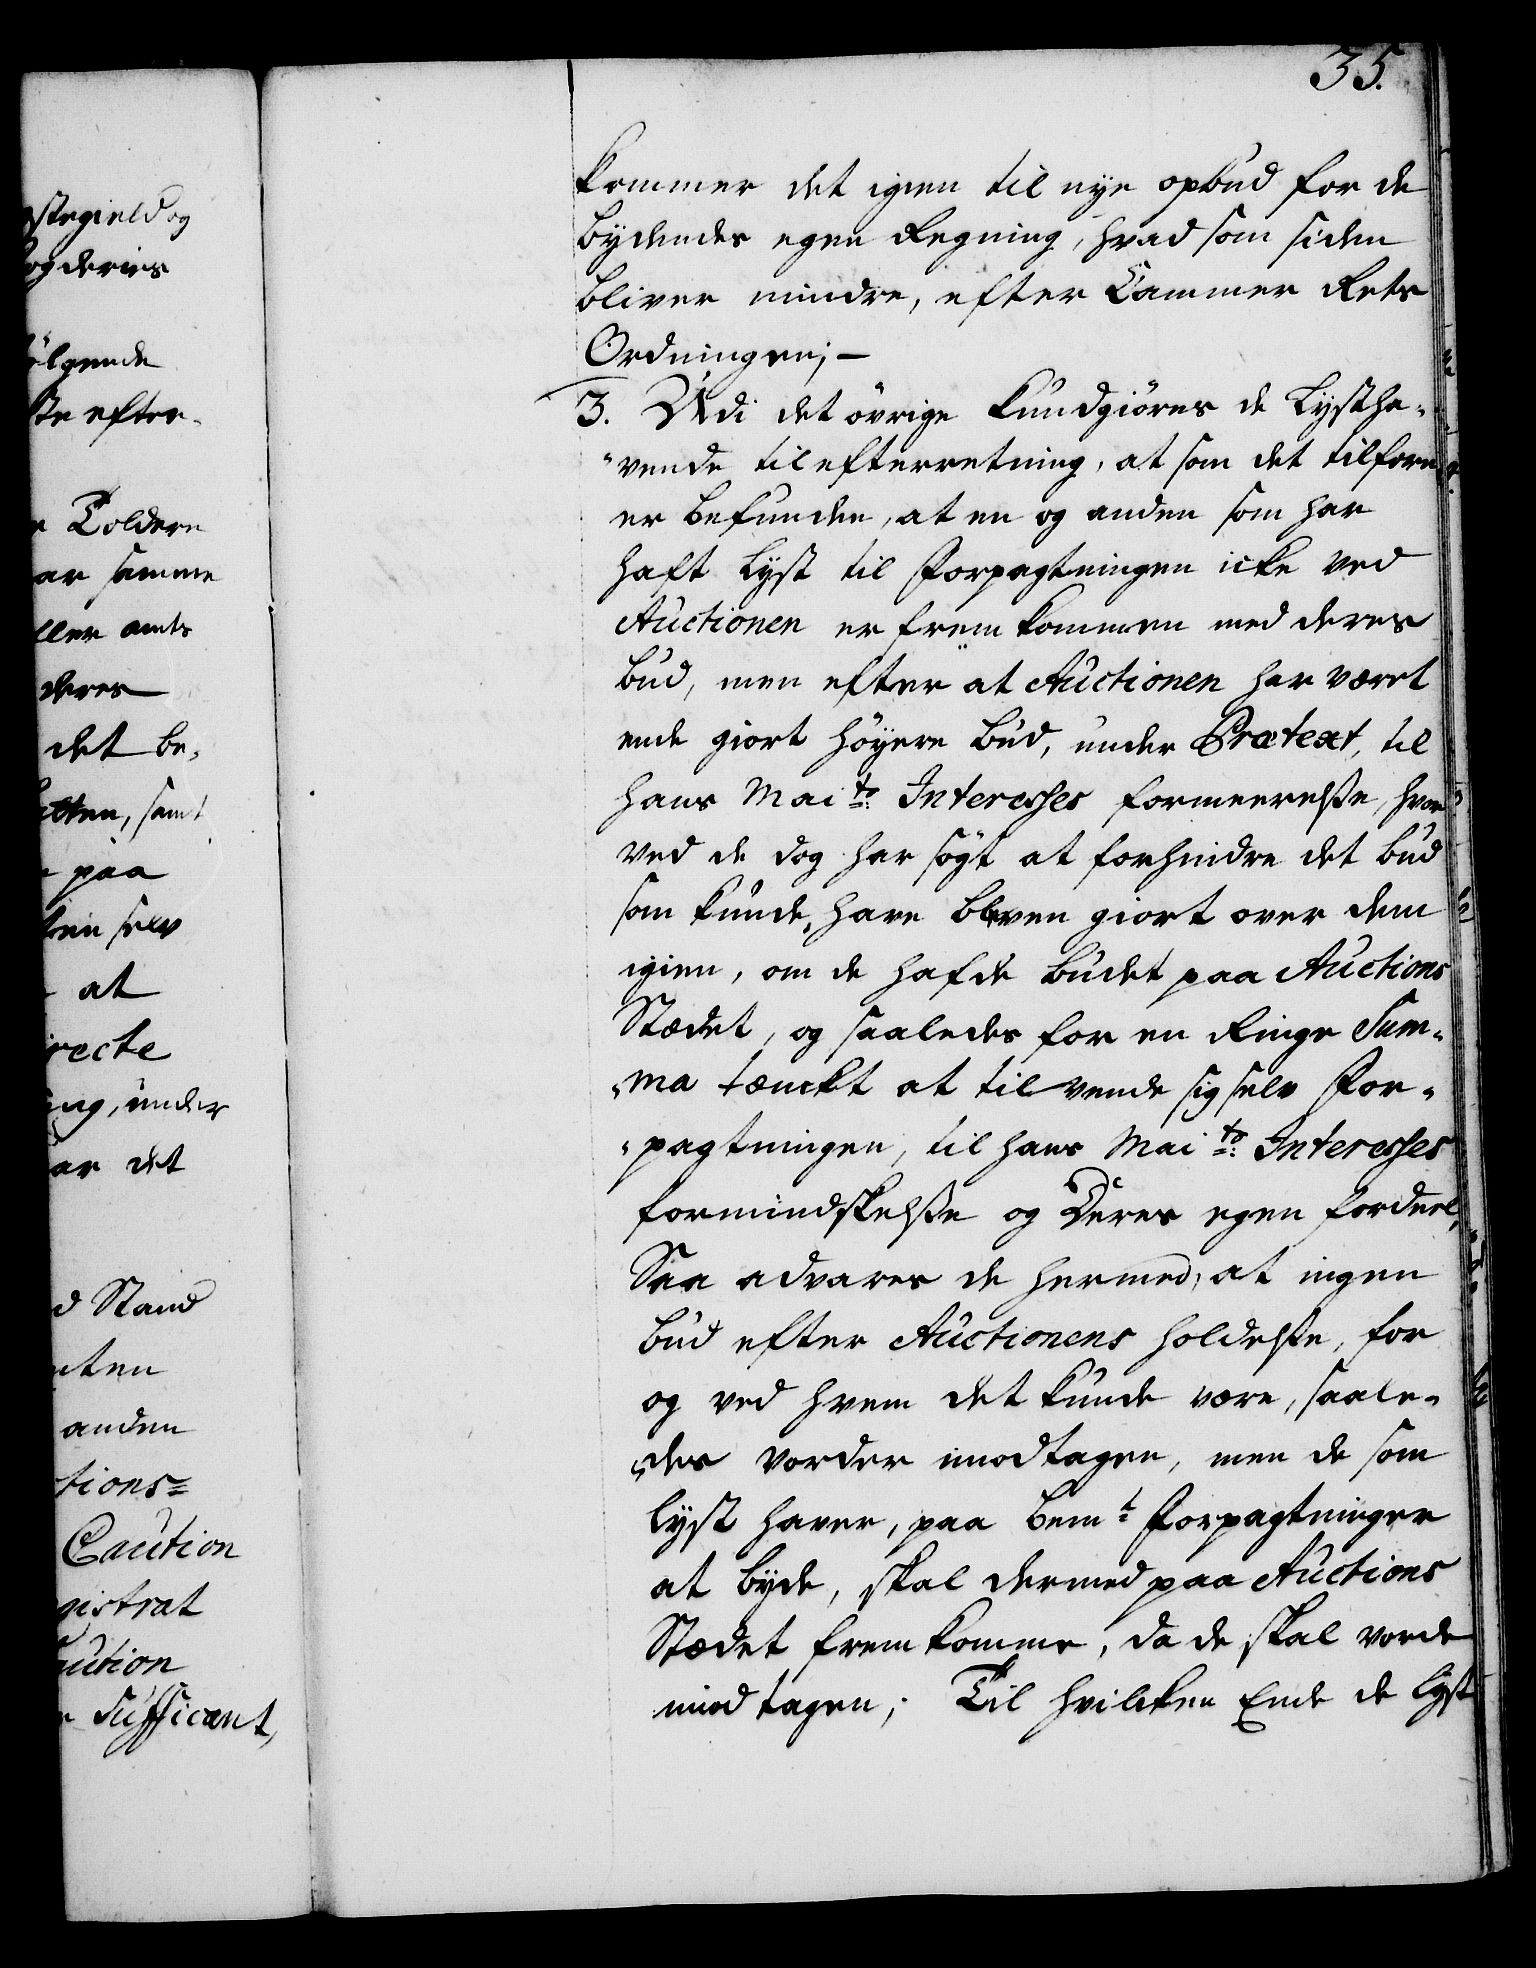 35.
kommer det igien til nye opbud for de
bydendes egen Regning, hvad som siden
bliver mindre, efter Cammer Rets
Ordningen; —
3. Udi det övrige kundgiöres de Lystha-
"vende til efterretning, at som det tilforn
er befunden, at en og anden som har
haft Lyst til Forpagtningen icke ved
Auctionen er frem kommen med deres
bud, men efter at Auctionen har været
ende giort höyere bud, under Prætext, til
hans Mai ts: Interesses formeerelsse, hvor
ved de dog har sögt at forhindre det bud
som kunde have bleven giort over dem
igien, om de hafde budet paa Auctions
Stædet, og saaledes for en Ringe Sum-
"ma tænckt at tilvende sig selv For-
"pagtningen, til hans Mai ts: Interesses
formindskelsse og Deres egen fordeel,
Saa advares de hermed, at ingen
bud efter Auctionens holdelsse, for
og ved hvem det kunde være, saale-
"des vorder imodtagen, men de som
lyst haver, paa bem t Forpagtninger
at byde, skal dermed paa Auctions
Stædet fremkomme, da de skal vorde
imod tagen; Til hvilcken Ende de lyst
stegield og
ogderies
ölgende
ste efter-
Toldere
ar samme
ller amts
deres
det be-
tten, samt
paa
selv
at
recte
ng, under
ar det
d Stand
nten
anden
tions=
Caution
gistrat
aution
Sufficant,